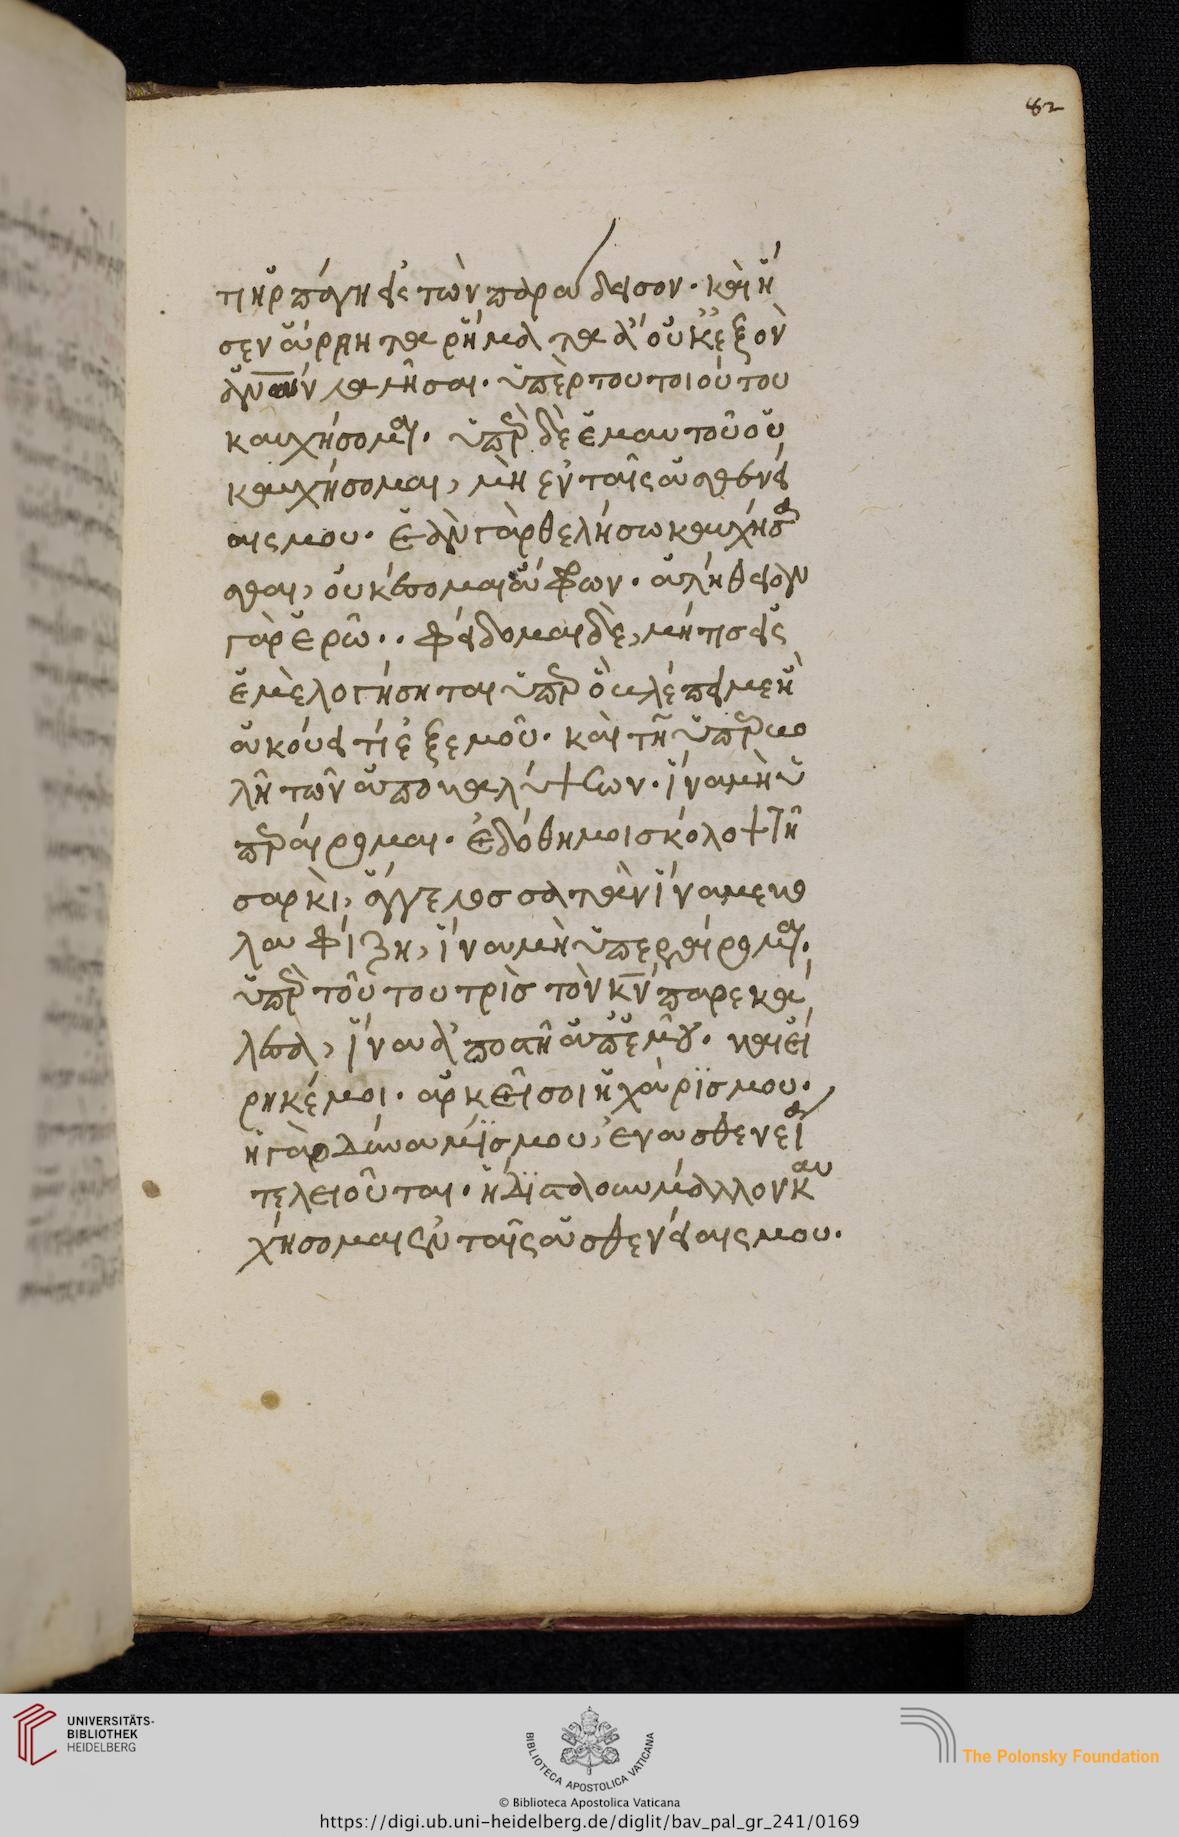 82
τι ἡρπάγη εἰς τὼν παράδεισον. καὶ ἤ
σεν ἄρρητα ρήματα ἃ οὐκ ἐξὸν
ἀν̅ο̅ν̅ λαλῆσαι. ὑπὲρ του τοιούτου
καυχήσομαι. ὑπὲρ δὲ ἐμαυτοῦ οὐ
καυχήσομαι, μὴ ἐν ταῖς ἀσθενεί
αις μου. ἐὰν γὰρ θελήσω καυχήσα
σθαι, οὐκ έσομαι άφρων. ἀλήθειαν
γὰρ ἐρῶ.. φείδομαι δὲ, μή τις εἰς
ἐμὲ λογήσηται ὑπὲρ ὃ βλέπει με ἢ
ἀκούει τί ἐξ εμοῦ. καὶ τῆ ὑπερβο
λῆ τῶν ἀποκαλύψεων. ἵνα μὴ ὑ
περαίρομαι. ἐδόθη μοι σκόλοψ τῆ
σαρκὶ, ἄγγελος σατὰν ἵνα με κο
λαφίζη, ἵνα μὴ ὑπεραίρομαι.
ὑπὲρ τοῦτου τρὶσ τὸν κ̅ν̅ παρεκά
λεσα, ἵνα ἀποστῆ ἀπ ἐμοῦ. καὶ εἴ
ρηκέ μοι. ἀρκεῖ σοι ἡ χάρϊς μου.
ἡ γὰρ δύναμΐς μου, ἐν ἀσθενεία
τελειοῦται. ἥδϊστα οὖν μάλλον καυ
χήσομαι ἐν ταῖς ἀσθενείαις μου.
UNIVERSITÄTS-
BIBLIOTHEK
HEIDELBERG
BIBLIOTECA APOSTOLICA VATICANA
The Polonsky Foundation
© Biblioteca Apostolica Vaticana
https://digi.ub.uni-heidelberg.de/diglit/bav_pal_gr_241/0169